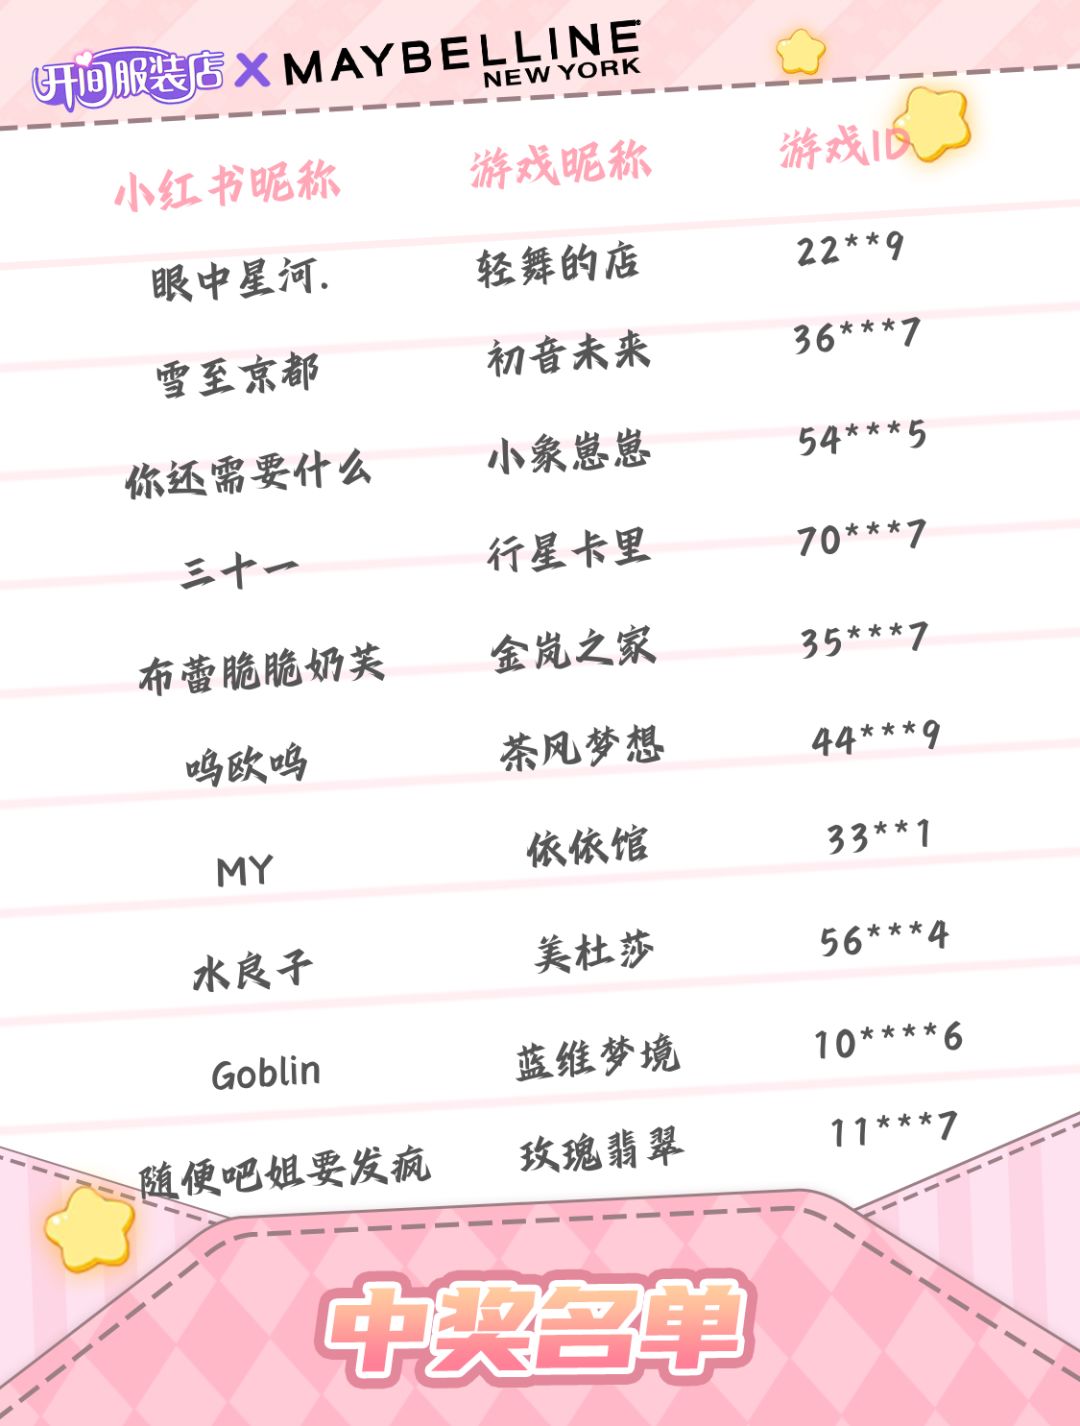 开间服装店 X MAYBELLINE
NEW YORK
小红书昵称 游戏昵称 游戏ID
眼中星河. 轻舞的店 22**9
雪至京都 初音未来 36***7
你还需要什么 小象崽崽 54***5
三十一 行星卡里 70***7
布蕾脆脆奶芙 金岚之家 35***7
呜欧呜 茶风梦想 44***9
MY 依依馆 33**1
水良子 美杜莎 56***4
Goblin 蓝维梦境 10****6
随便吧姐要发疯 玫瑰翡翠 11***7
中奖名单